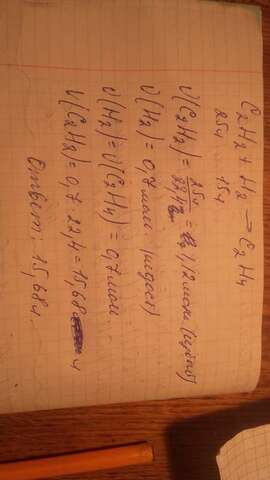 C₂H₂ + H₂ → C₂H₄
25л 15л
ν(C₂H₂) = 25л/22,4 = 1,12 моль (избыт)
ν(H₂) = 0,7 моль (недост)
ν(H₂) = ν(C₂H₄) = 0,7 моль
V(C₂H₄) = 0,7 · 22,4 = 15,68 л
Ответ: 15,68 л.